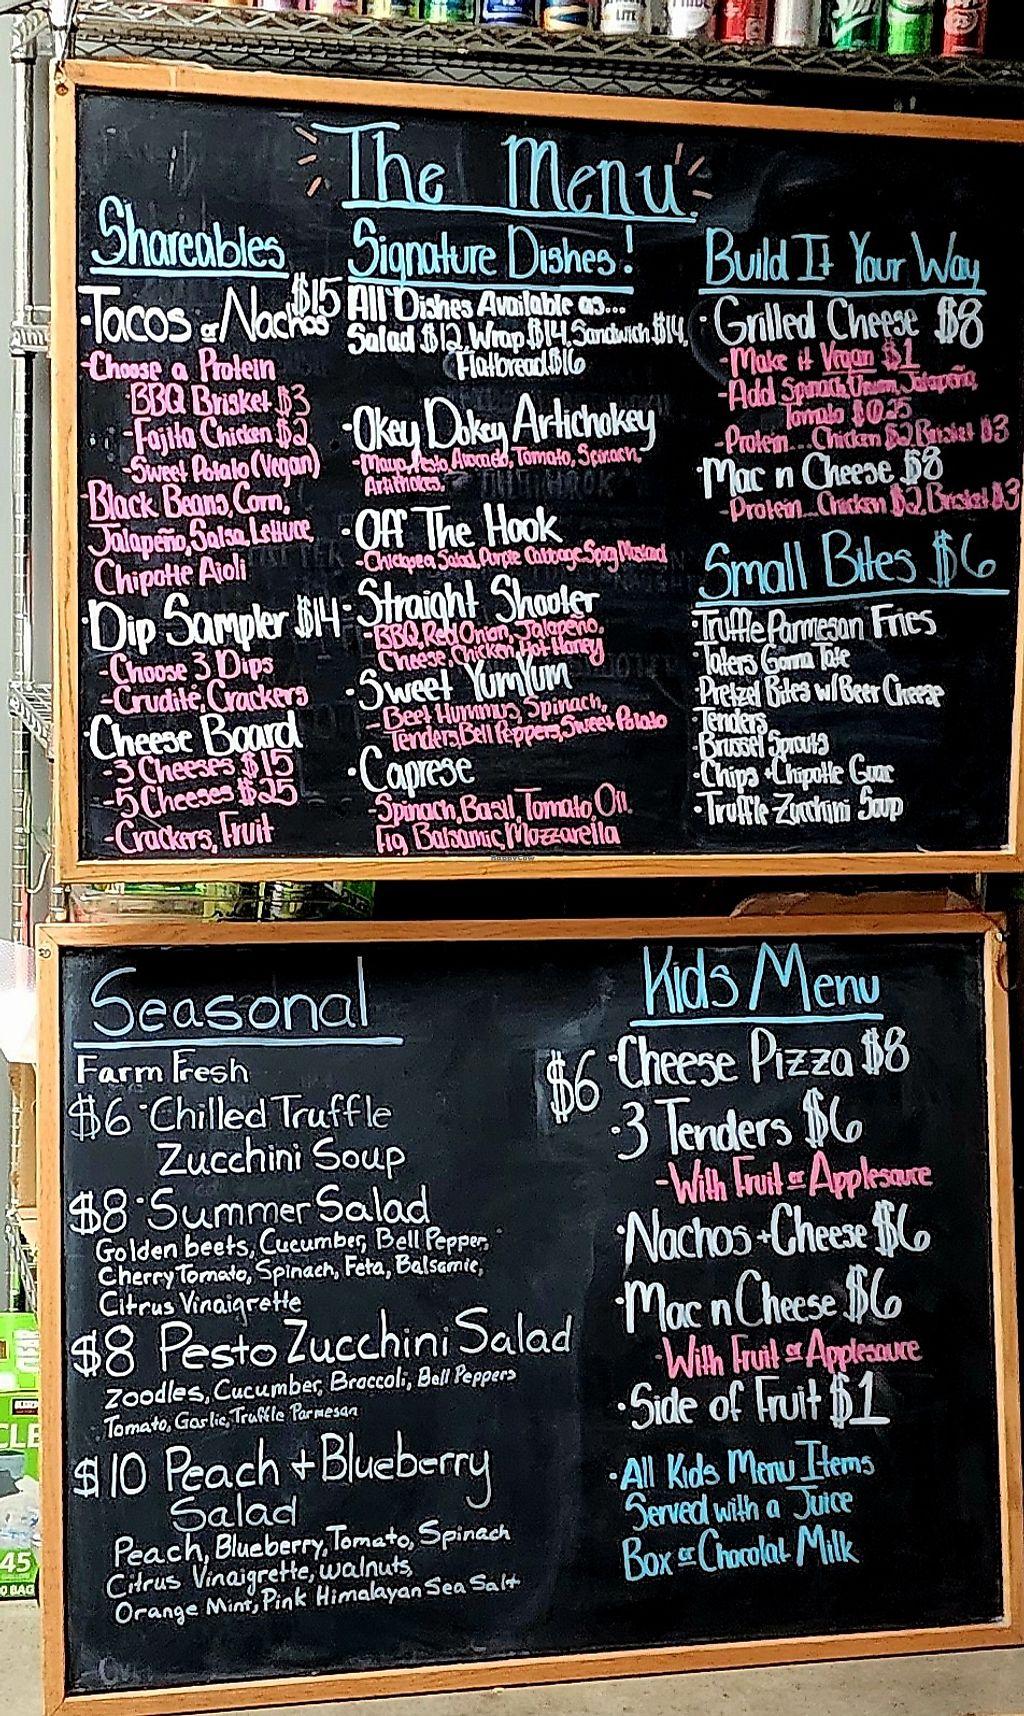 The Menu
Shareables
·Tacos or Nachos $15
-Choose a Protein
-BBQ Brisket $3
-Fajita Chicken $2
-Sweet Potato (Vegan)
-Black Beans, Corn,
Jalapeño, Salsa, Lettuce
Chipotle Aioli
·Dip Sampler $14
-Choose 3 Dips
-Crudité, Crackers
·Cheese Board
-3 Cheeses $15
-5 Cheeses $25
-Crackers, Fruit
Signature Dishes!
All Dishes Available as...
Salad $12, Wrap $14, Sandwich $14,
Flatbread $16
·Okey Dokey Artichokey
-Mayo, Pesto, Avocado, Tomato, Spinach,
Artichokes,
·Off The Hook
-Chickpea Salad, Purple Cabbage, Spicy Mustard
·Straight Shooter
-BBQ, Red Onion, Jalapeño,
Cheese, Chicken, Hot Honey
·Sweet YumYum
-Beet Hummus, Spinach,
Tenders, Bell Peppers, Sweet Potato
·Caprese
-Spinach, Basil, Tomato, Oil,
Fig Balsamic, Mozzarella
Build It Your Way
·Grilled Cheese $8
-Make it Vegan $1
-Add Spinach, Onion, Jalapeño,
Tomato
-Protein... Chicken $2, Brisket $3
·Mac n Cheese $8
-Protein... Chicken $2, Brisket $3
Small Bites $6
·Truffle Parmesan Fries
·Taters Gonna Tate
·Pretzel Bites w/ Beer Cheese
·Tenders
·Brussel Sprouts
·Chips + Chipotle Guac
·Truffle Zucchini Soup
Seasonal
Farm Fresh
$6 ·Chilled Truffle
Zucchini Soup
$8 ·Summer Salad
Golden beets, Cucumber, Bell Pepper,
Cherry Tomato, Spinach, Feta, Balsamic,
Citrus Vinaigrette
$8 Pesto Zucchini Salad
Zoodles, Cucumber, Broccoli, Bell Peppers
Tomato, Garlic, Truffle Parmesan
$10 Peach + Blueberry
Salad
Peach, Blueberry, Tomato, Spinach
Citrus Vinaigrette, walnuts,
Orange Mint, Pink Himalayan Sea Salt
Kids Menu
$6 ·Cheese Pizza $8
·3 Tenders $6
-With Fruit or Applesauce
·Nachos + Cheese $6
·Mac n Cheese $6
-With Fruit or Applesauce
·Side of Fruit $1
·All Kids Menu Items
Served with a Juice
Box or Chocolat Milk
LITE
45